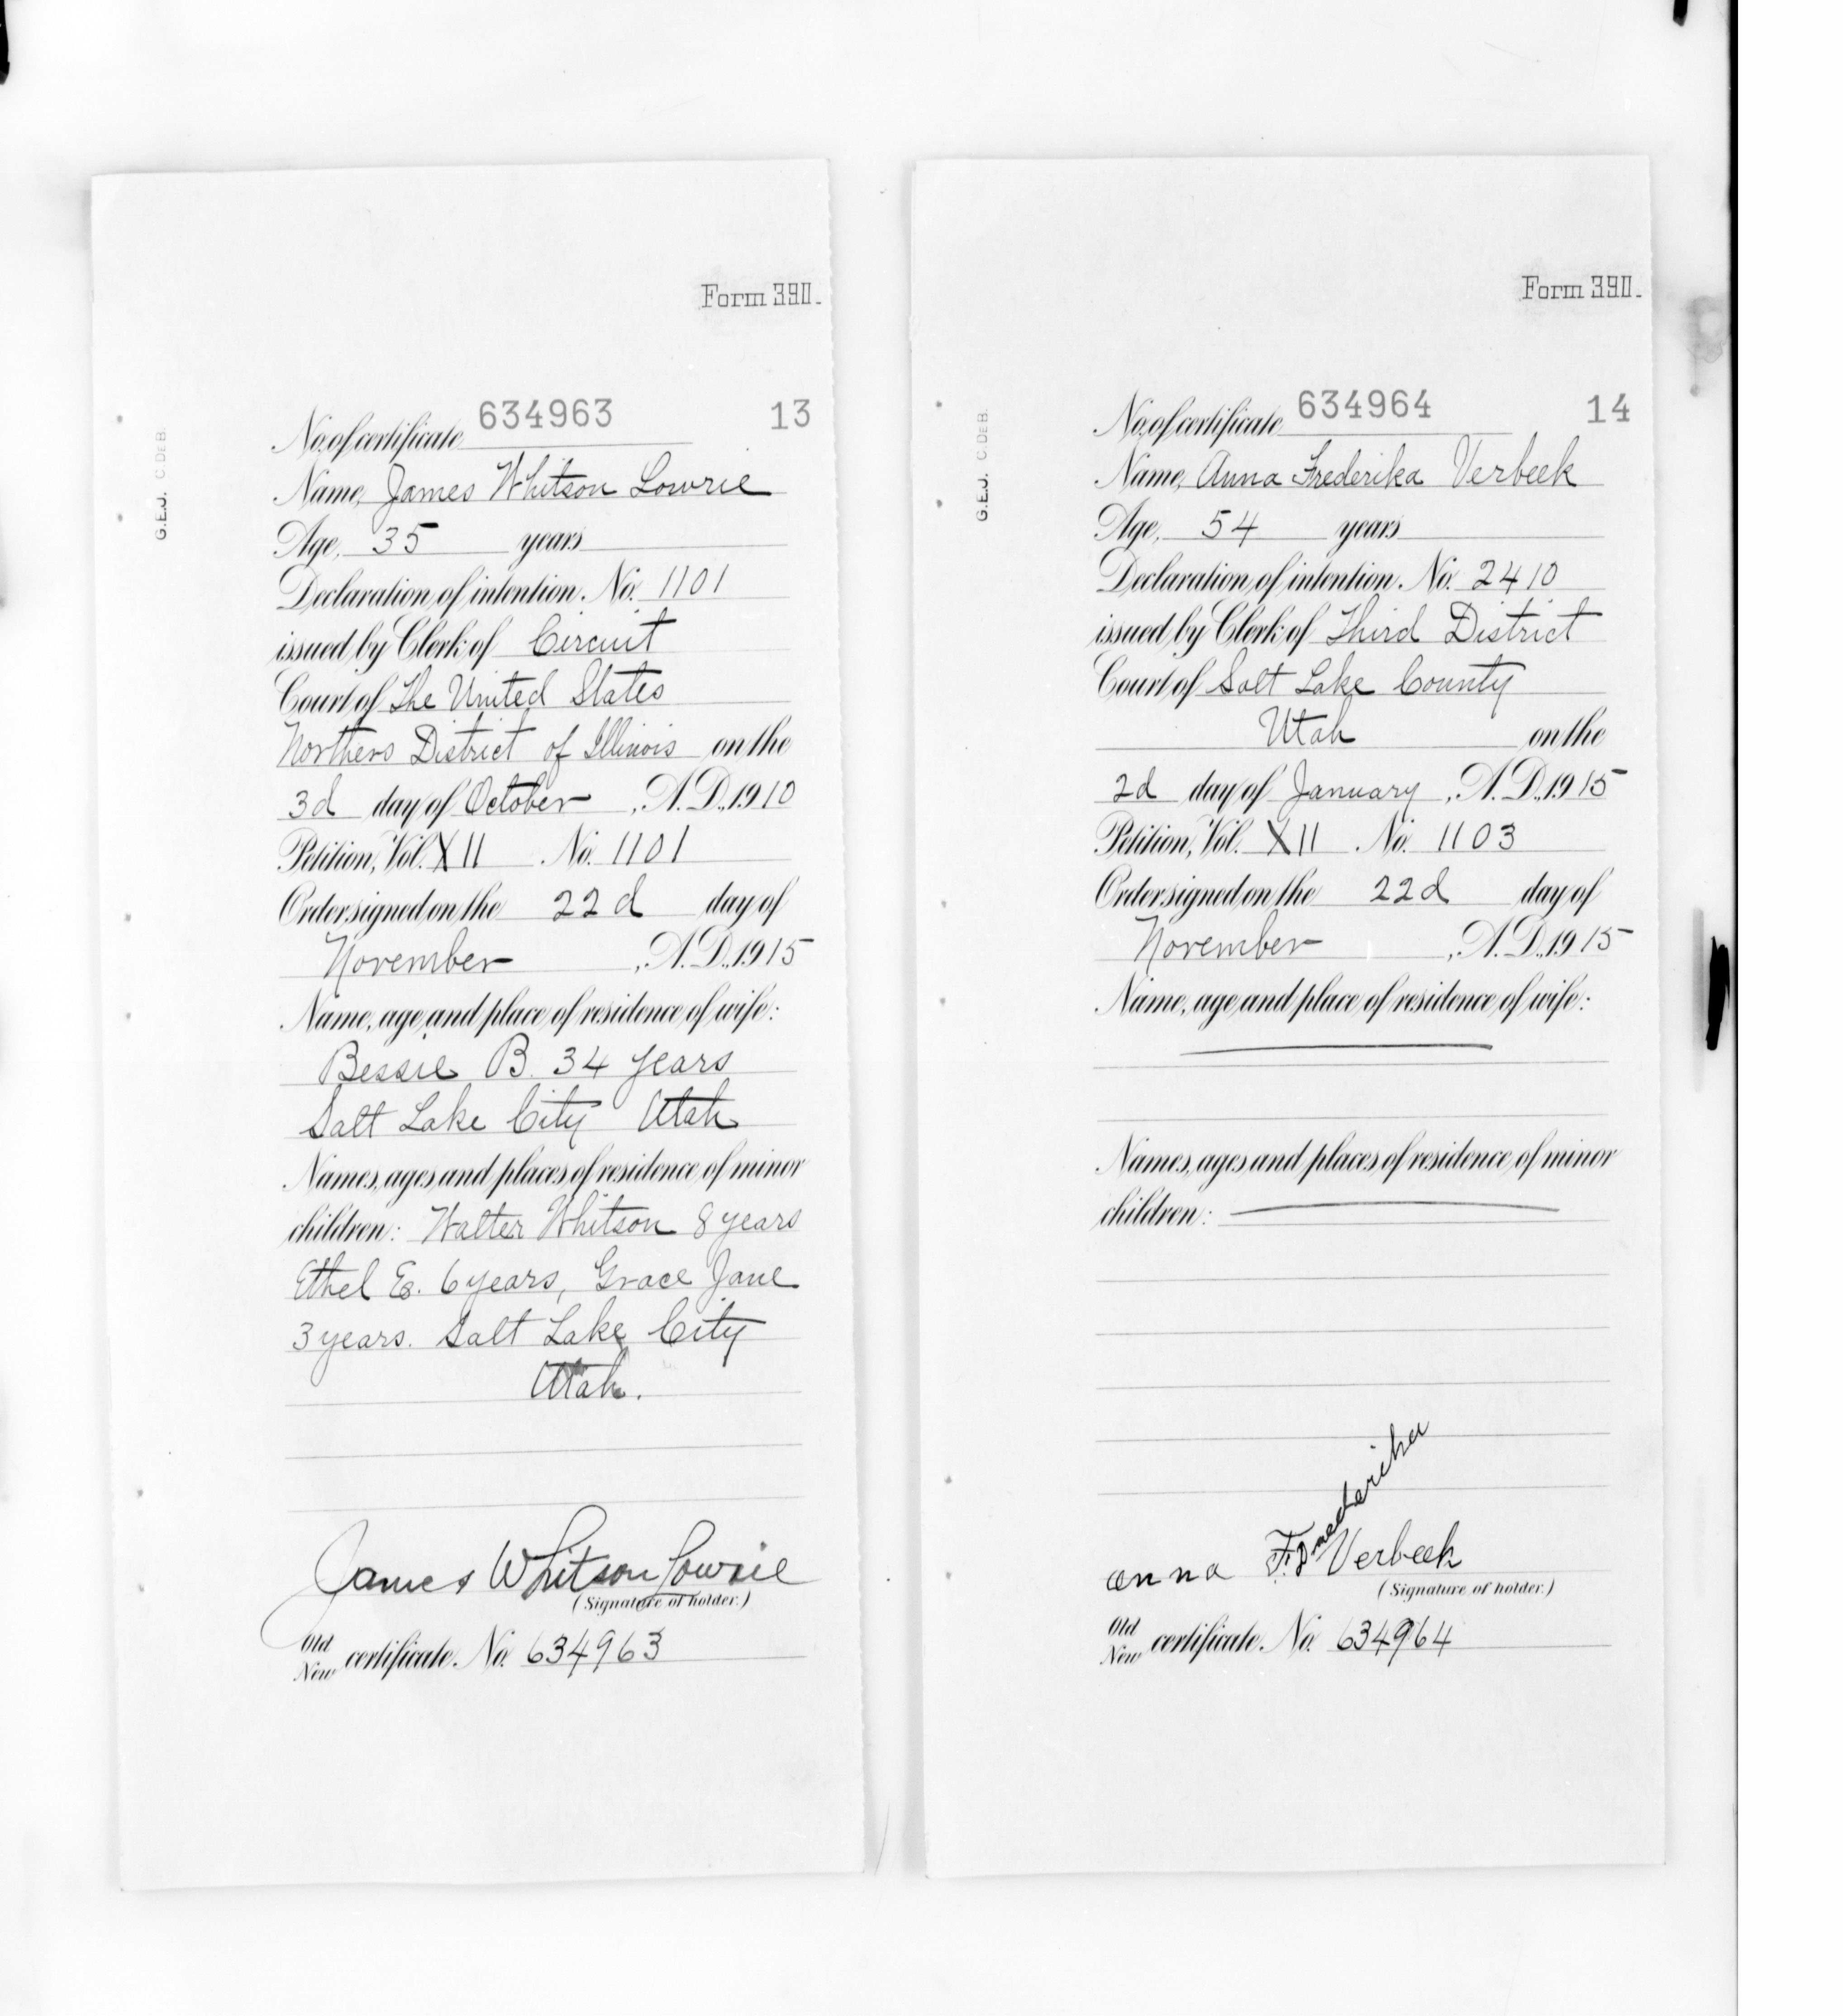 Form 390.
G.E.J. C. DE B.
No. of certificate 634963 13
Name, James Whitson Lowrie
Age, 35 years
Declaration of intention. No. 1101
issued by Clerk of Circuit
Court of The United States
Northern District of Illinois on the
3d day of October, A.D., 1910
Petition, Vol. XII No. 1101
Order signed on the 22d day of
November, A.D., 1915
Name, age and place of residence of wife:
Bessie B. 34 years
Salt Lake City Utah
Names, ages and places of residence of minor
children: Walter Whitson 8 years
Ethel E. 6 years, Grace Jane
3 years. Salt Lake City
Utah.
James Whitson Lowrie
(Signature of holder.)
Old
New certificate. No. 634963
Form 390.
G.E.J. C. DE B.
No. of certificate 634964 14
Name, Anna Frederika Verbeek
Age, 54 years
Declaration of intention. No. 2410
issued by Clerk of Third District
Court of Salt Lake County
Utah on the
2d day of January, A.D., 1915
Petition, Vol. XII No. 1103
Order signed on the 22d day of
November, A.D., 1915
Name, age and place of residence of wife:
Names, ages and places of residence of minor
children:
anna Verbeek
(Signature of holder.)
Old
New certificate. No. 634964